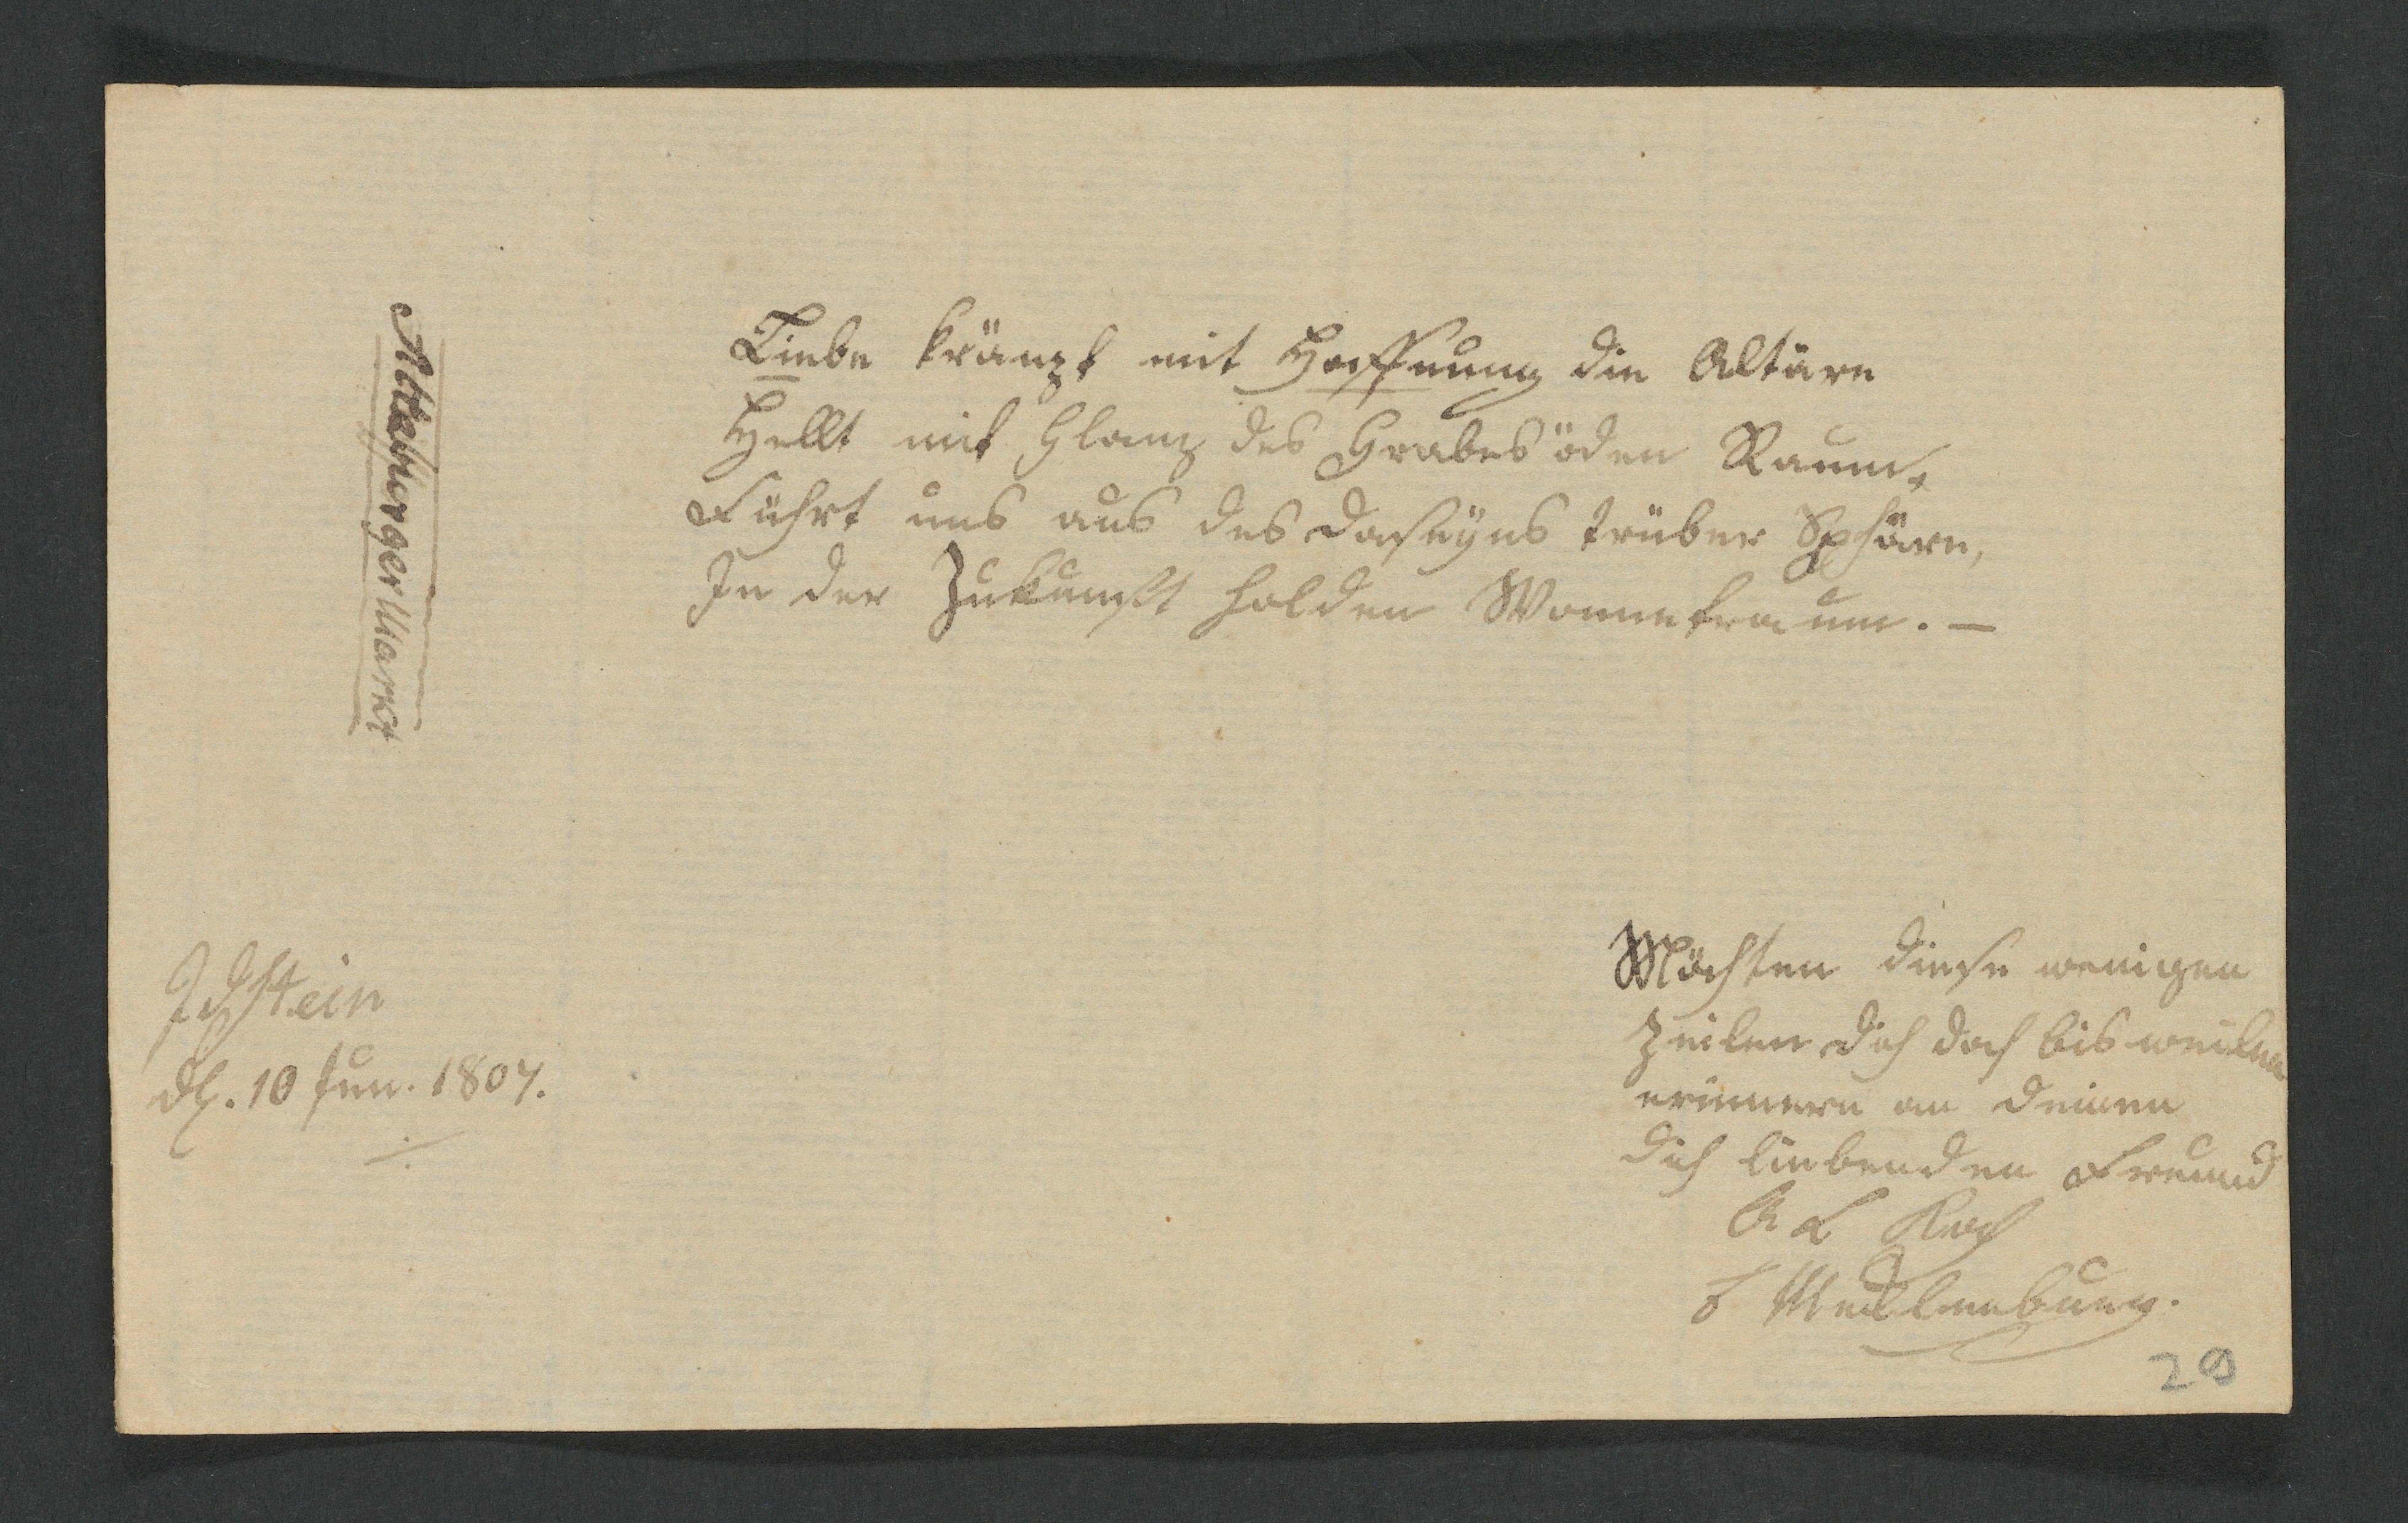 Liebe kränzt mit Hoffnung die Altäre
Hellt mit Glanz des Grabes öden Raum,
Führt uns aus des Daseyns trüber Sphäre,
In der Zukunft holden Wonnetraum. —
Markt
Idstein
d. 10 Jun. 1807.
Möchten diese wenigen
Zeilen dich doch bisweilen
erinnern an deinen
dich liebenden Freund
A L Koch
Mecklenburg.
29